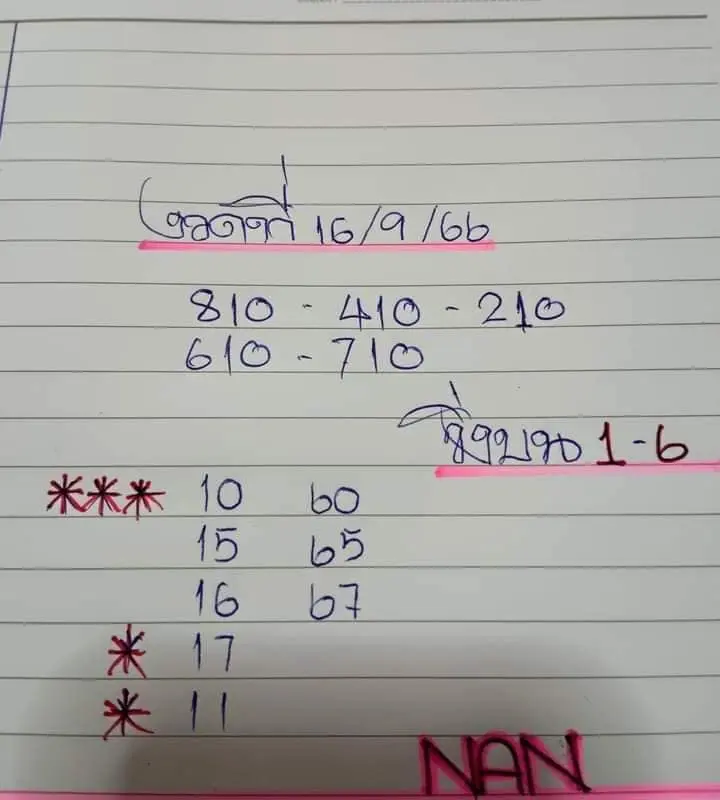 งวดที่ 16/9/66
810 - 410 - 210
610 - 710
วิ่งบน 1-6
*** 10 60
15 65
16 67
* 17
* 11
NAN